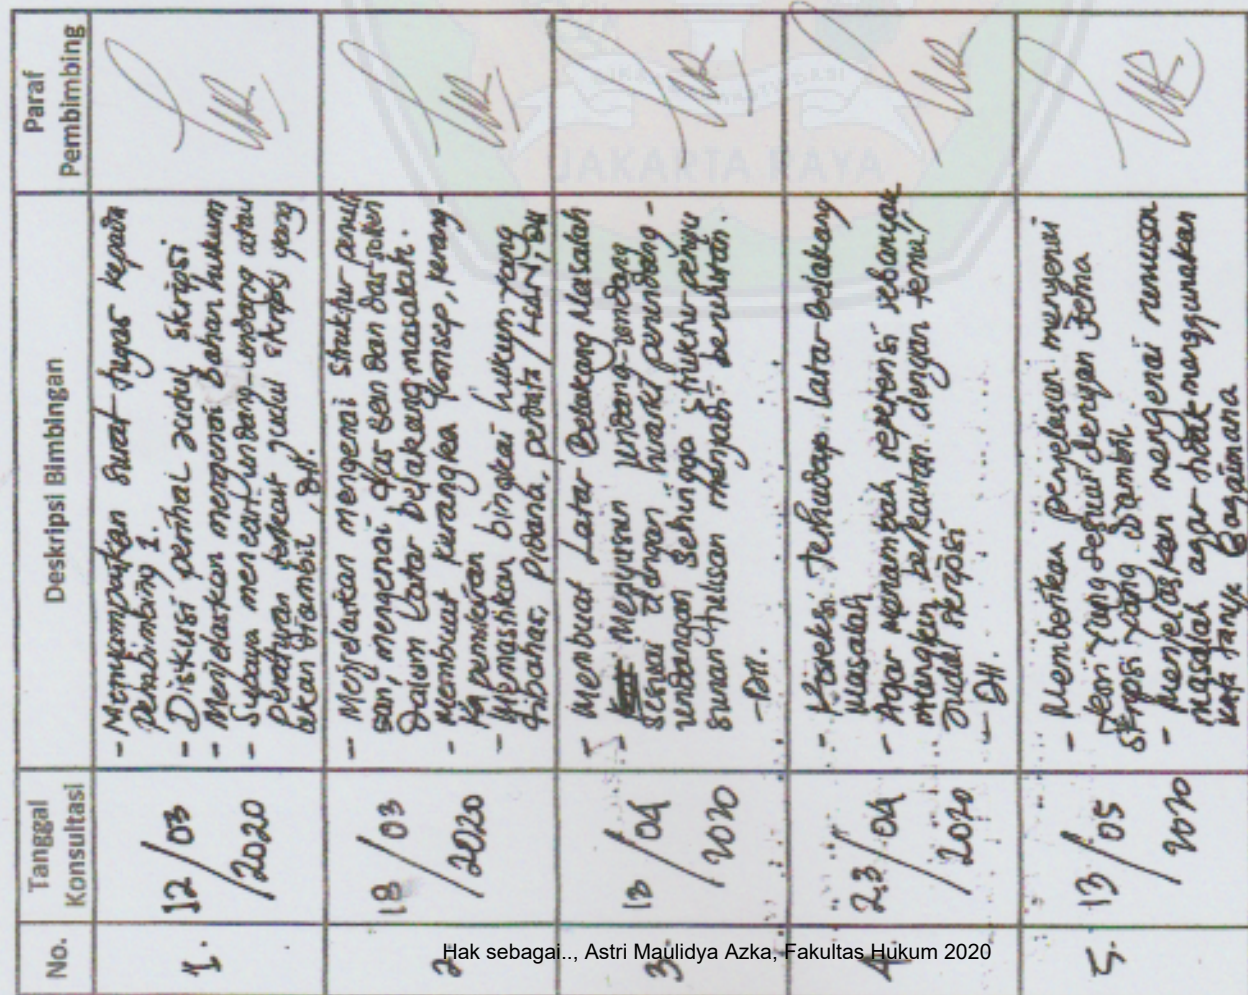 No.
Tanggal
Konsultasi
Deskripsi Bimbingan
Paraf
Pembimbing
1.
12/03
/2020
- Menyampaikan surat tugas kepada
Pembimbing 1.
- Diskusi perihal judul skripsi
- Menjelaskan mengenai bahan hukum
- Supaya mencari undang-undang atau
peraturan terkait judul skripsi yang
akan diambil, Dll.
2
18/03
/2020
- Menjelaskan mengenai struktur penuli
san, mengenai das sen dan das sollen
dalam Latar belakang masalah.
- Membuat kerangka konsep, kerang-
ka pemikiran
- Memastikan bingkai hukum yang
dibahas, pidana, perdata/HTN, Dll
3.
/04
2020
- Membuat Latar Belakang Masalah
- Menyusun undang-undang
sesuai dengan hirarki perundang-
undangan sehingga struktur penyu
sunan tulisan menjadi beruntun.
- Dll.
4.
23/04
/2020
- Koreksi Terhadap Latar Belakang
Masalah
- Agar menambah referensi sebanyak
mungkin berkaitan dengan tema/
judul skripsi
- Dll.
5.
13/05
2020
- Memberikan penjelasan mengenai
Teori yang sesuai dengan Tema
skripsi yang diambil
- Menjelaskan mengenai rumusan
masalah agar tidak menggunakan
kata tanya Bagaimana
JAKARTA RAYA
Hak sebagai.., Astri Maulidya Azka, Fakultas Hukum 2020